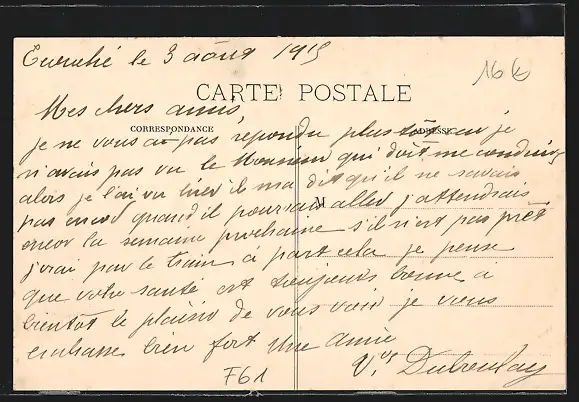 le 3 août 1915
16€
CARTE POSTALE
Mes chers amis,
CORRESPONDANCE
ADRESSE
je ne vous ai pas repondu plus tôt car je
n'avais pas vu le Monsieur qui doit me conduire
alors je l'ai vu hier il ma dit qu'il ne savais
pas encor quand il pourrait aller j'attendrais
M
encor la semaine prochaine s'il n'est pas prêt
j'irai par le train à part cela je pense
que votre santé est toujours bonne à
bientôt le plaisir de vous voir je vous
embrasse bien fort une amie
Vve
F61